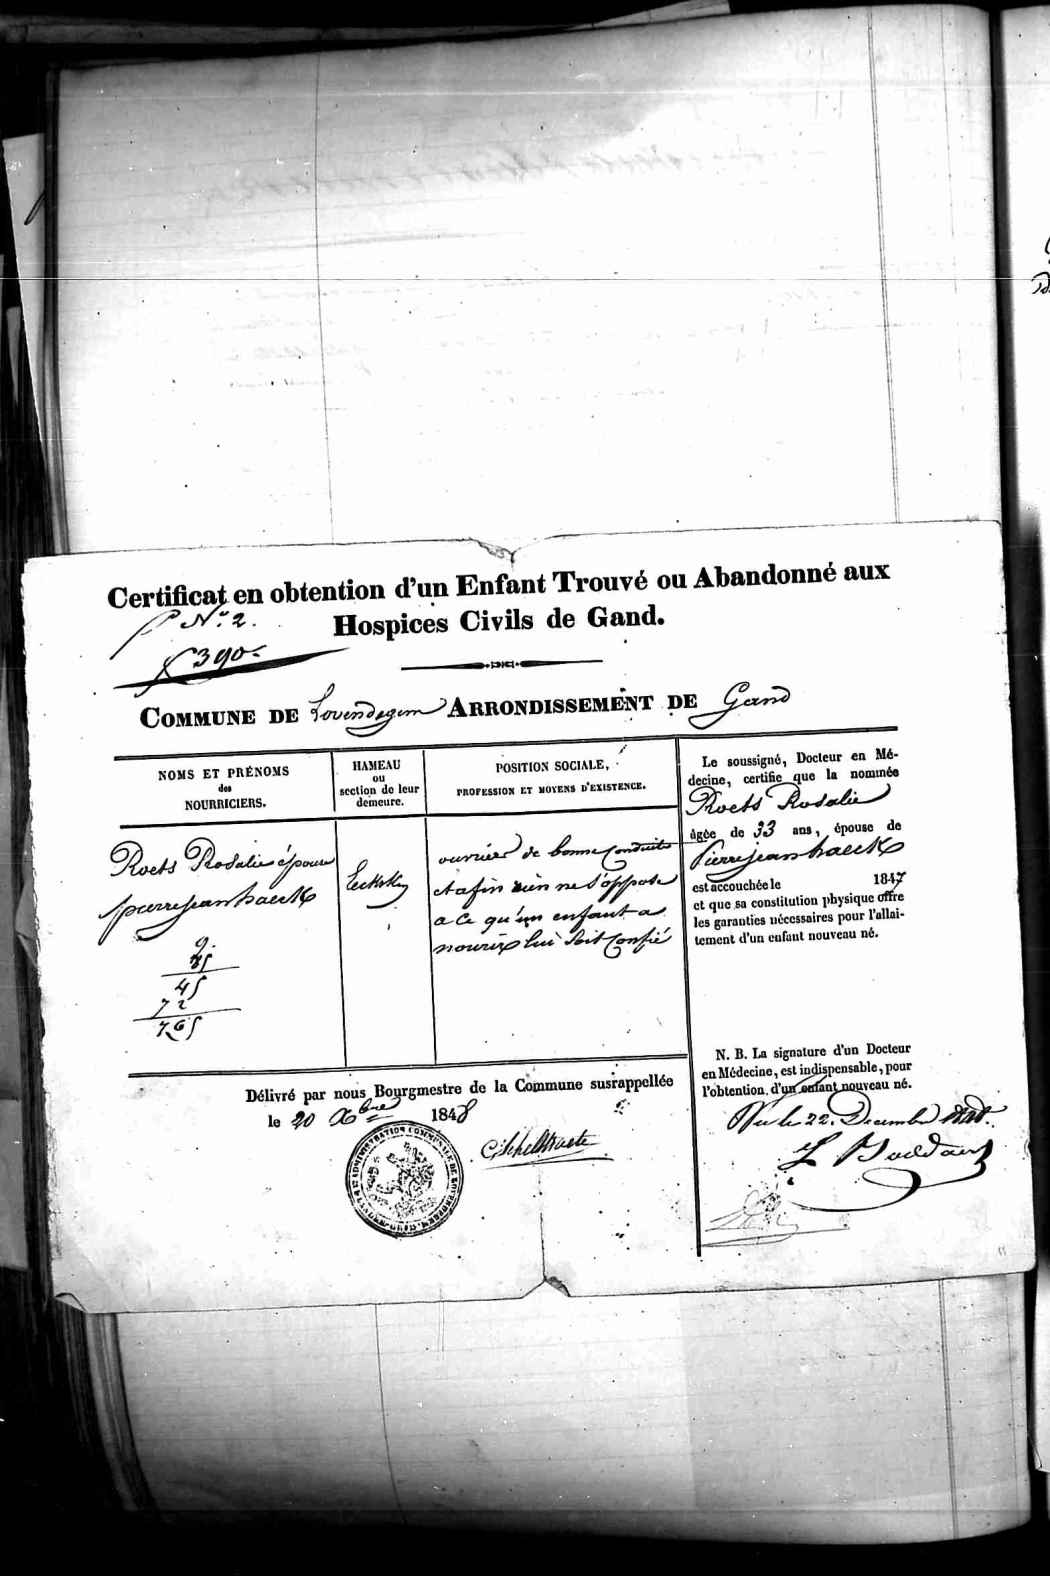 Certificat en obtention d'un Enfant Trouvé ou Abandonné aux
Hospices Civils de Gand.
N.º 2.
390
COMMUNE DE Lovendegem ARRONDISSEMENT DE Gand
NOMS ET PRÉNOMS
des
NOURRICIERS.
HAMEAU
ou
section de leur
demeure.
POSITION SOCIALE,
PROFESSION ET MOYENS D'EXISTENCE.
Roets Rosalie épouse
pierre jean haeck
9.
45
72
765
ouvrier de bonne Conduite
et afin rien ne s'oppose
a ce qu'un enfant a
nourir lui soit Confié
Le soussigné, Docteur en Mé-
decine, certifie que la nommée
Roets Rosalie
âgée de 33 ans, épouse de
Pierre jean haeck
est accouchée le 1847
et que sa constitution physique offre
les garanties nécessaires pour l'allai-
tement d'un enfant nouveau né.
N. B. La signature d'un Docteur
en Médecine, est indispensable, pour
l'obtention d'un enfant nouveau né.
Vu le 22. Decembre
Délivré par nous Bourgmestre de la Commune susrappellée
le 20 Xbre 1848
ADMINISTRATION COMMUNALE DE LOVENDEGEM